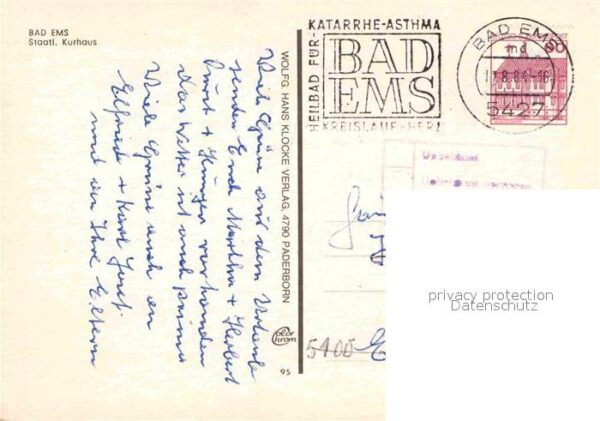 BAD EMS
Staatl. Kurhaus
Viele Grüße aus dem Urlaub
senden Euch Martha + Herbert
Kurt +
verbunden
das Wetter ist auch prima
Viele Grüße auch an
Elfriede + Karl Josef
und an Ihre Eltern
WOLFG. HANS KLOCKE VERLAG, 4790 PADERBORN
Color
chrom
95
HEILBAD FÜR
KATARRHE-ASTHMA
BAD
EMS
KREISLAUF-HERZ
BAD EMS
md
5427
60
5400
privacy protection
Datenschutz